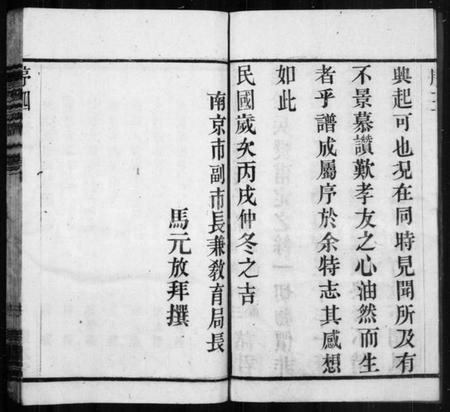 興起可也况在同時見聞所及有
不景慕讚歎孝友之心油然而生
者乎譜成屬序於余特志其感想
如此
民國歲次丙戌仲冬之吉
南京市副市長兼教育局長
馬元放拜撰
序四